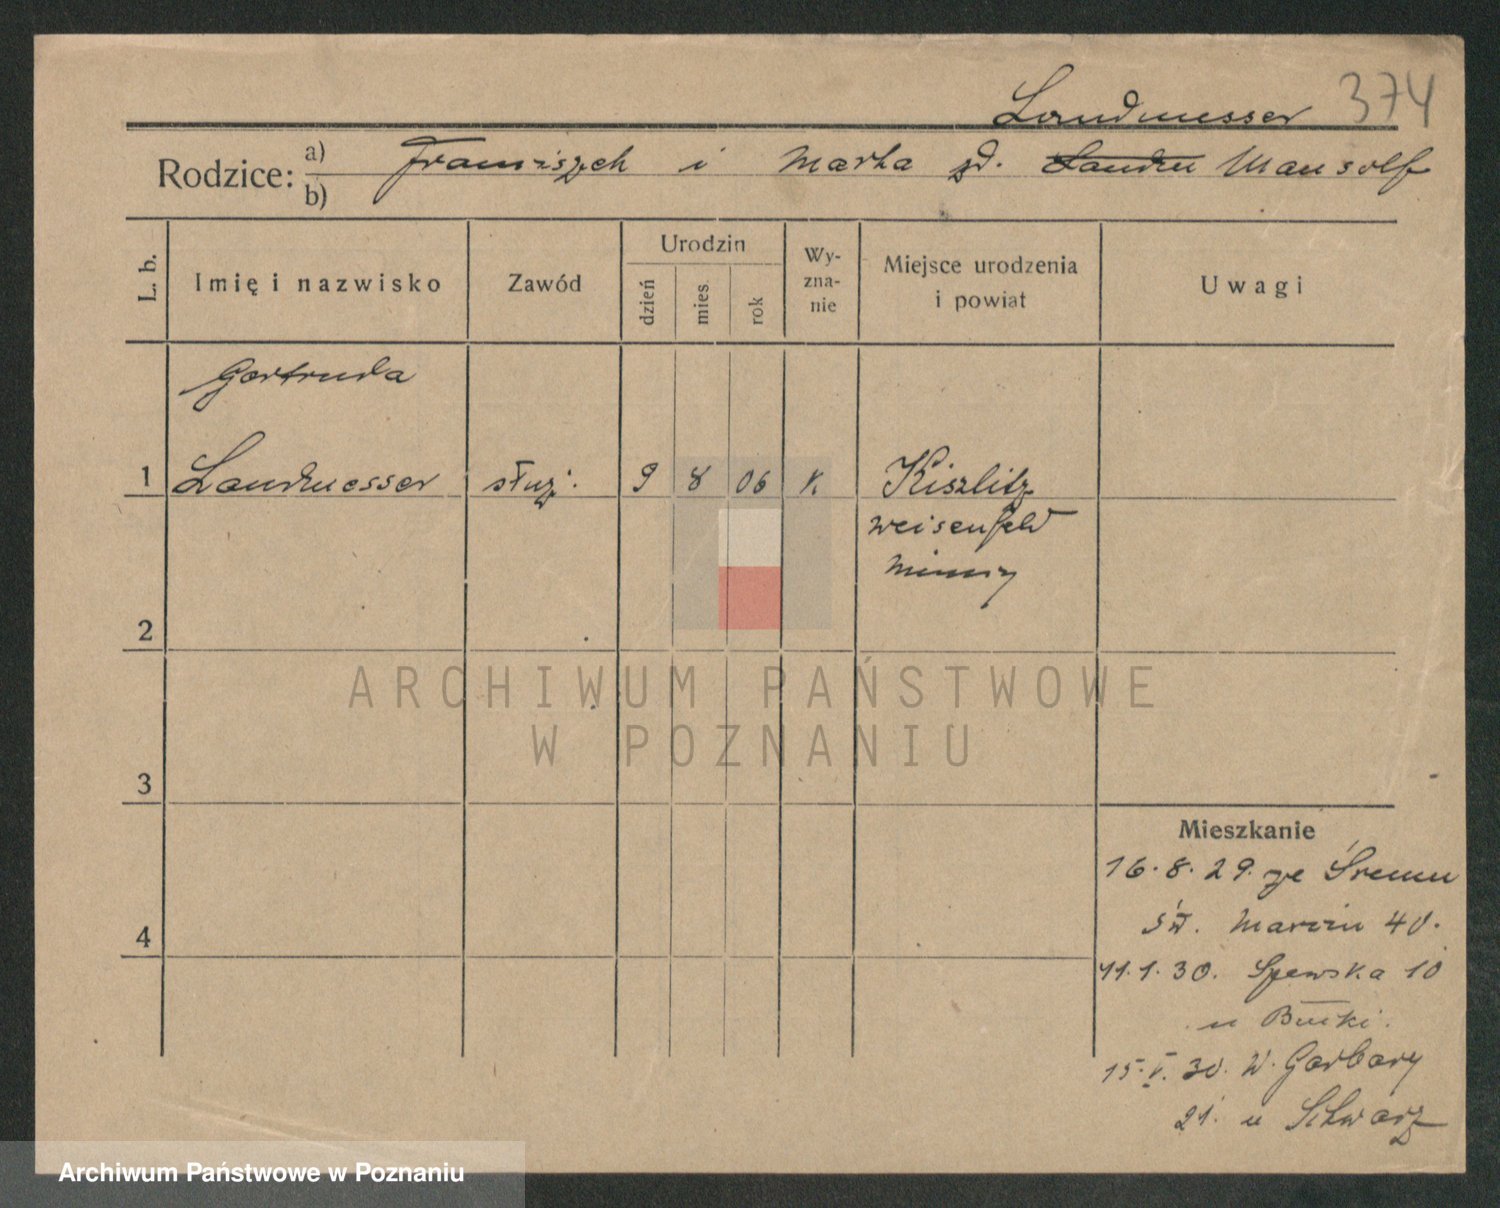 Landmesser 374
Rodzice: a) Franciszek i Marta zd. Landm Mansolf
b)
L. b.
Imię i nazwisko
Zawód
Urodzin
dzień
mies
rok
Wy-
zna-
nie
Miejsce urodzenia
i powiat
Uwagi
Gertruda
1 Landmesser służ. 9 8 06 k. Kiszlitz
Weisenfeld
Niemcy
2
ARCHIWUM PAŃSTWOWE
W POZNANIU
3
Mieszkanie
16.8.29. ze Śremu
Św. Marcin 40.
4
11.1.30. Szewska 10
u
15.V.30. W. Garbary
21. u Schwarz
Archiwum Państwowe w Poznaniu